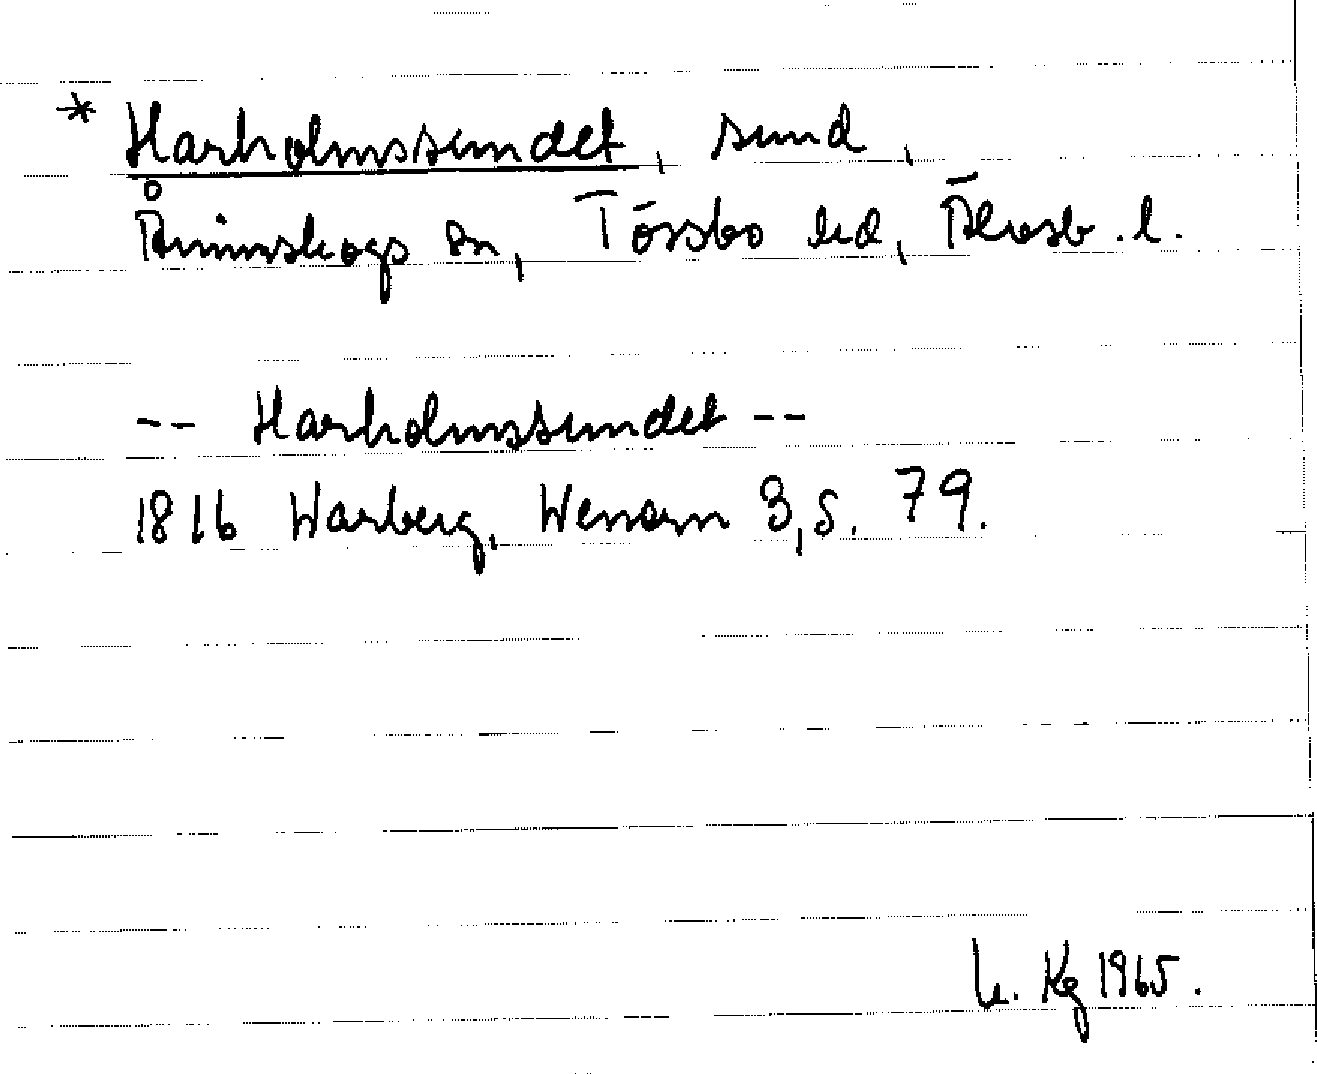 * Harholmssundet, sund,
Ånimskogs sn, Tössbo hd, Älvsb. l.
-- Harholmssundet --
1816 Warberg, Wenern 3, s. 79.
Kg 1965.